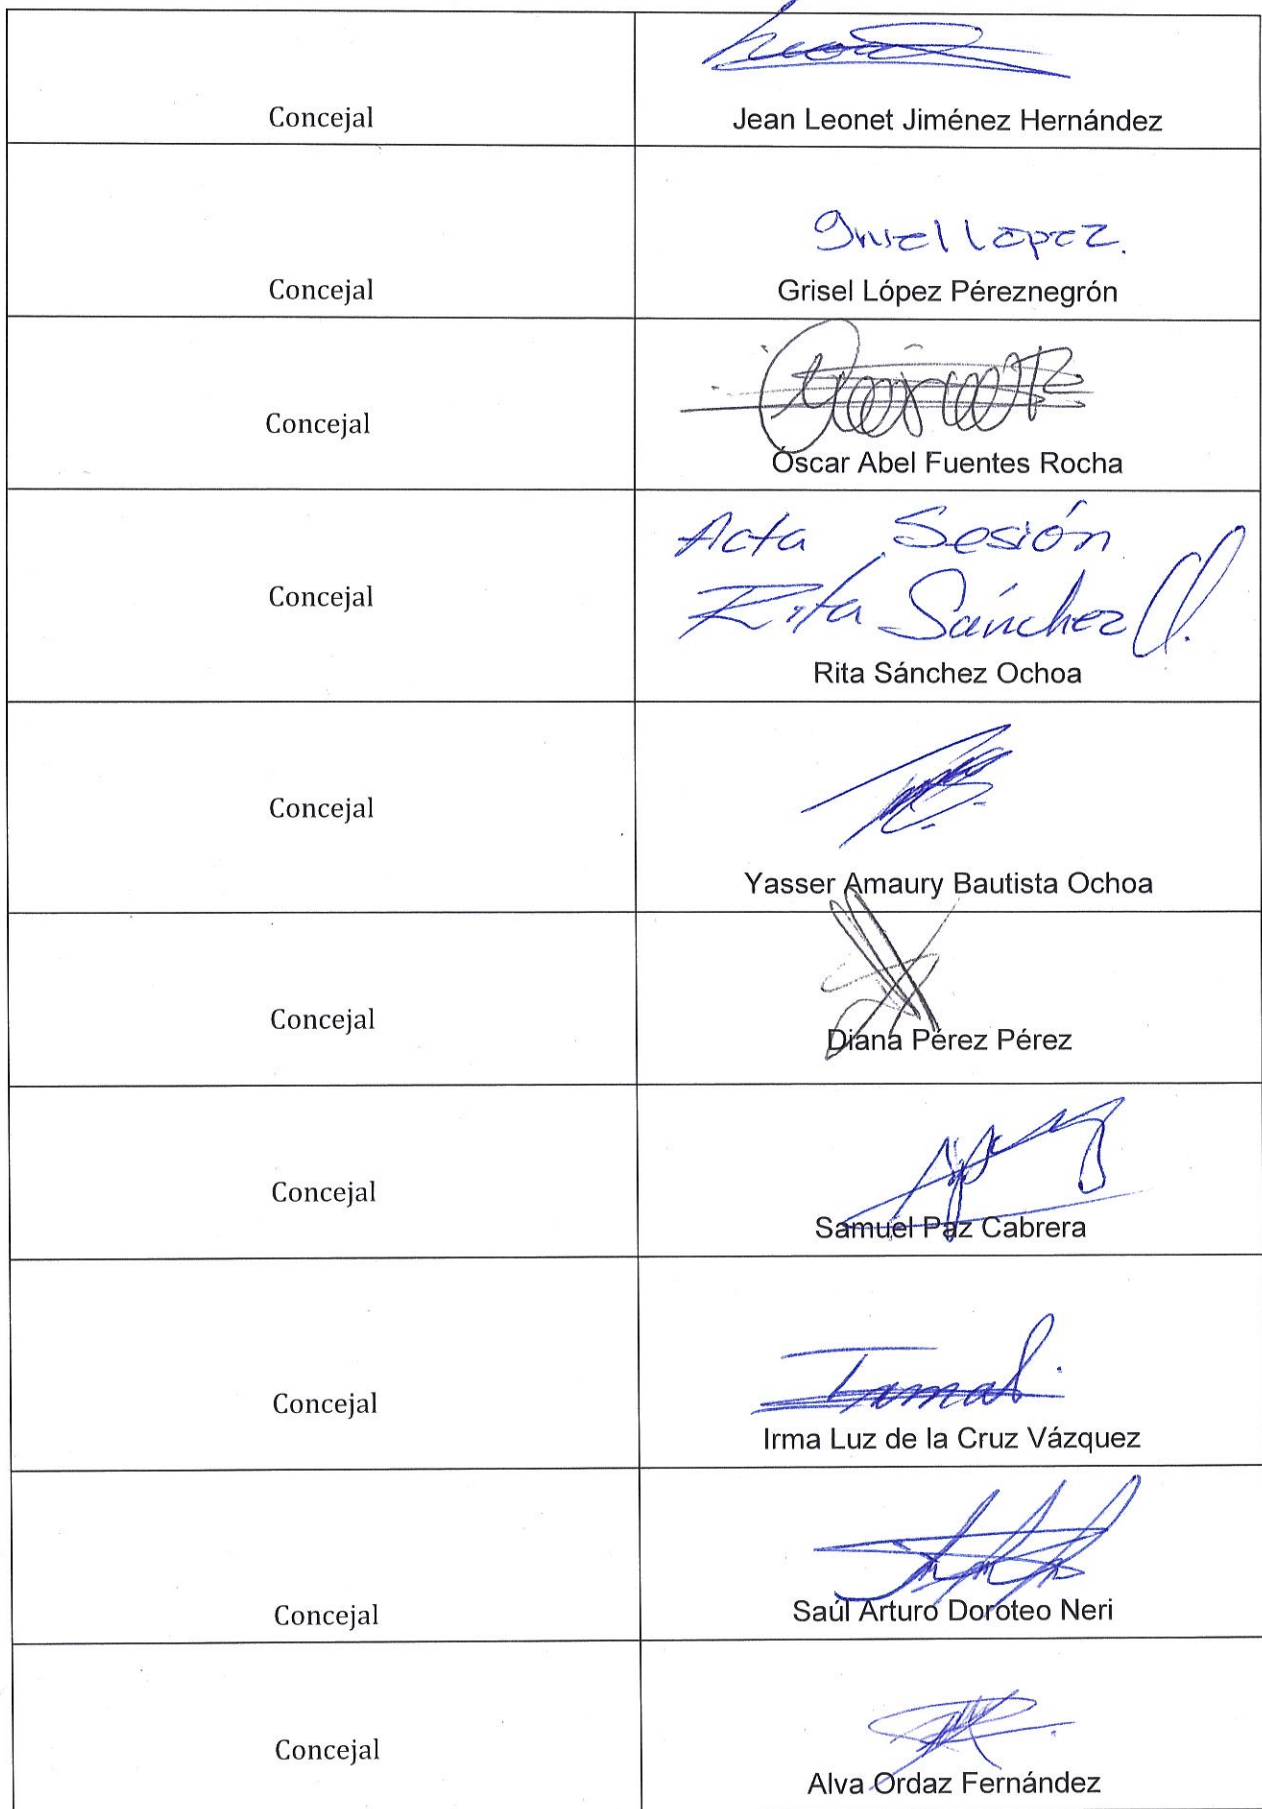 Concejal
Jean Leonet Jiménez Hernández
Grisel Lopez.
Concejal
Grisel López Péreznegrón
Concejal
Óscar Abel Fuentes Rocha
Acta Sesión
Rita Sánchez O.
Concejal
Rita Sánchez Ochoa
Concejal
Yasser Amaury Bautista Ochoa
Concejal
Diana Pérez Pérez
Concejal
Samuel Paz Cabrera
Concejal
Irma Luz de la Cruz Vázquez
Concejal
Saúl Arturo Doroteo Neri
Concejal
Alva Ordaz Fernández